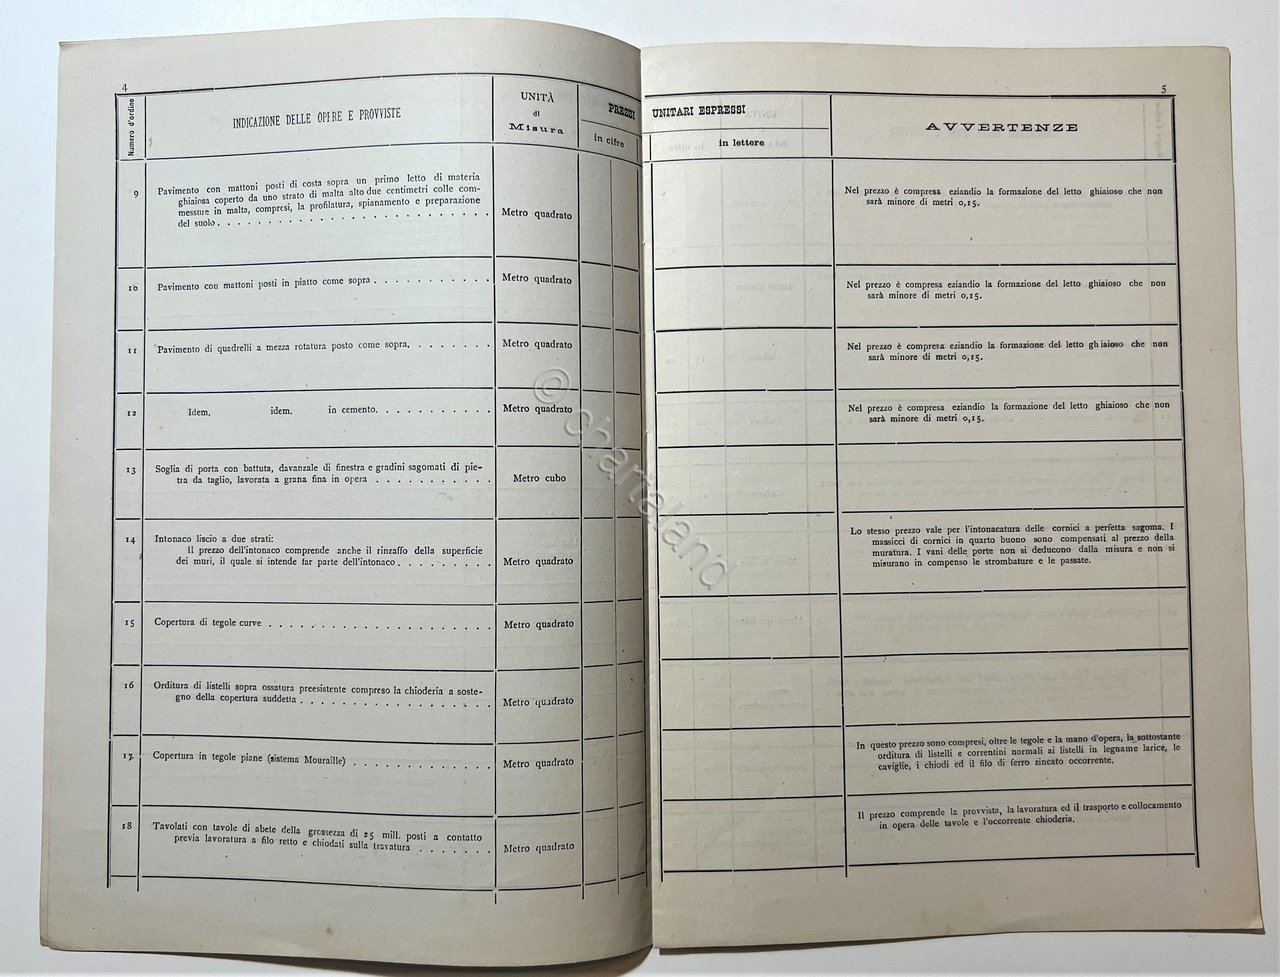 4
Numero d'ordine
INDICAZIONE DELLE OPERE E PROVVISTE
UNITÀ
di
Misura
PREZZI
in cifre
9
Pavimento con mattoni posti di costa sopra un primo letto di materia
ghiaiosa coperto da uno strato di malta alto due centimetri colle com-
messure in malta, compresi, la profilatura, spianamento e preparazione
del suolo . . . . . . . . . . . . . . . . . . . . . . . . . .
Metro quadrato
10
Pavimento con mattoni posti in piatto come sopra . . . . . . . . . . .
Metro quadrato
11
Pavimento di quadrelli a mezza rotatura posto come sopra. . . . . . . .
Metro quadrato
12
Idem. idem. in cemento. . . . . . . . . . .
Metro quadrato
13
Soglia di porta con battuta, davanzale di finestra e gradini sagomati di pie-
tra da taglio, lavorata a grana fina in opera . . . . . . . . . . .
Metro cubo
14
Intonaco liscio a due strati:
Il prezzo dell'intonaco comprende anche il rinzaffo della superficie
dei muri, il quale si intende far parte dell'intonaco . . . . . . . . .
Metro quadrato
15
Copertura di tegole curve . . . . . . . . . . . . . . . . . . . . .
Metro quadrato
16
Orditura di listelli sopra ossatura preesistente compreso la chioderia a soste-
gno della copertura suddetta . . . . . . . . . . . . . . . . . .
Metro quadrato
17
Copertura in tegole piane (sistema Mouraille) . . . . . . . . . . . . .
Metro quadrato
18
Tavolati con tavole di abete della grossezza di 25 mill. posti a contatto
previa lavoratura a filo retto e chiodati sulla travatura . . . . . . .
Metro quadrato
5
UNITARI ESPRESSI
in lettere
AVVERTENZE
Nel prezzo è compresa eziandio la formazione del letto ghiaioso che non
sarà minore di metri 0,15.
Nel prezzo è compresa eziandio la formazione del letto ghiaioso che non
sarà minore di metri 0,15.
Nel prezzo è compresa eziandio la formazione del letto ghiaioso che non
sarà minore di metri 0,15.
Nel prezzo è compresa eziandio la formazione del letto ghiaioso che non
sarà minore di metri 0,15.
Lo stesso prezzo vale per l'intonacatura delle cornici a perfetta sagoma. I
massicci di cornici in quarto buono sono compensati al prezzo della
muratura. I vani delle porte non si deducono dalla misura e non si
misurano in compenso le strombature e le passate.
In questo prezzo sono compresi, oltre le tegole e la mano d'opera, la sottostante
orditura di listelli e correntini normali ai listelli in legname larice, le
caviglie, i chiodi ed il filo di ferro zincato occorrente.
Il prezzo comprende la provvista, la lavoratura ed il trasporto e collocamento
in opera delle tavole e l'occorrente chioderia.
© chartaland